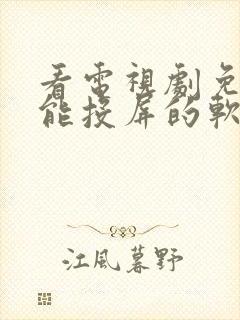 看電視劇免
能投屏的軟
江風暮野